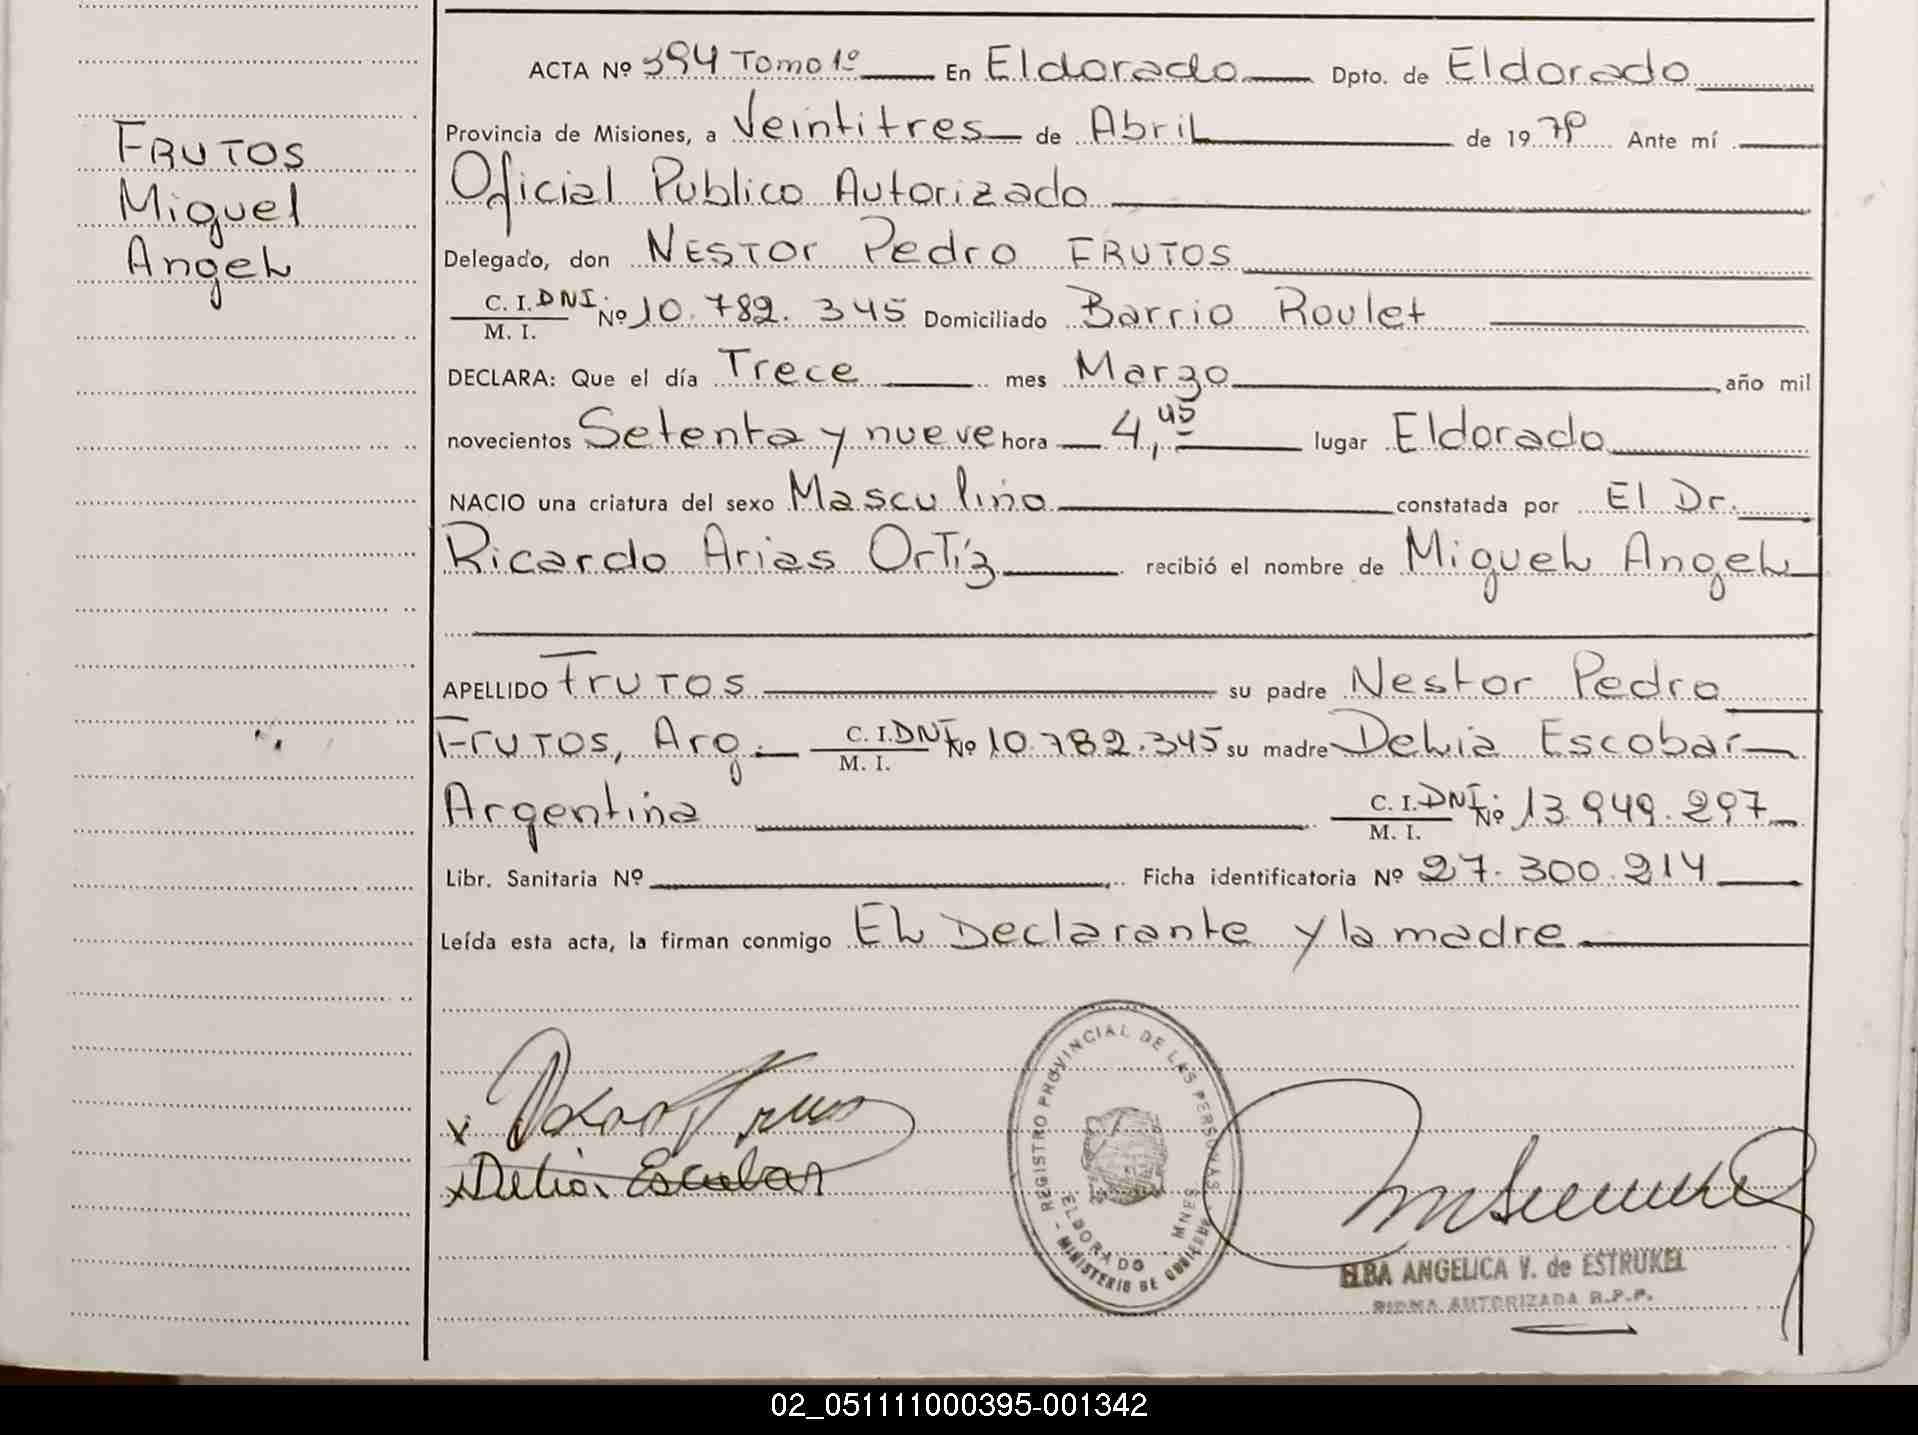 FRUTOS
Miguel
Angel
ACTA Nº 394 Tomo 1º En Eldorado Dpto. de Eldorado
Provincia de Misiones, a Veintitres de Abril de 1979 Ante mí
Oficial Publico Autorizado
Delegado, don NESTOr Pedro FRUTOS
C. I. DNI Nº 10.782.345 Domiciliado Barrio Roulet
M. I.
DECLARA: Que el día Trece mes Marzo año mil
novecientos Setenta y nueve hora 4,45 lugar Eldorado
NACIO una criatura del sexo Masculino constatada por El Dr.
Ricardo Arias Ortíz recibió el nombre de Miguel Angel
APELLIDO FruTOS su padre Nestor Pedro
FruTOS, Arg. C. I. DNI Nº 10.782.345 su madre Delia Escobar
M. I.
Argentina C. I. DNI Nº 13.949.297
M. I.
Libr. Sanitaria Nº Ficha identificatoria Nº 27.300.214
Leída esta acta, la firman conmigo El Declarante y la madre
x Delia Escobar
REGISTRO PROVINCIAL DE LAS PERSONAS
ELDORADO - MNES
MINISTERIO DE GOBIERNO
ELBA ANGELICA V. de ESTRUKEL
FIRMA AUTORIZADA R.P.P.
02_051111000395-001342